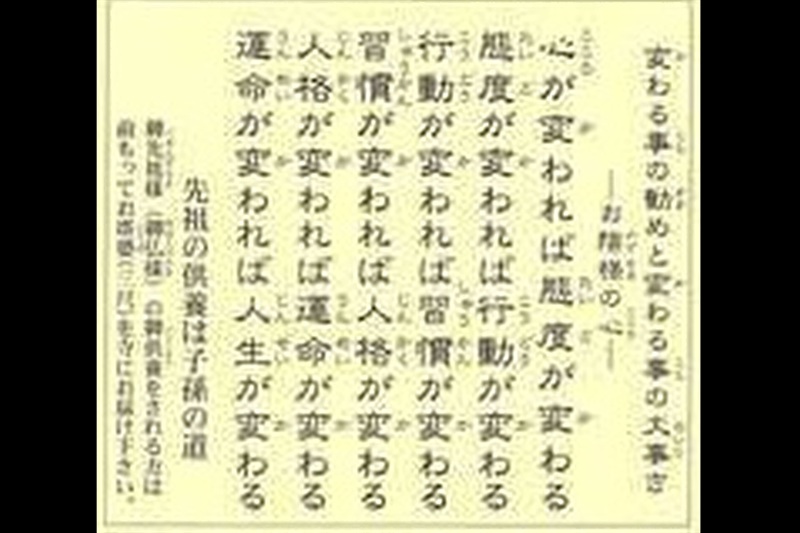 変わる事の勧めと変わる事の大事さ
―お陰様の心―
心が変われば態度が変わる
態度が変われば行動が変わる
行動が変われば習慣が変わる
習慣が変われば人格が変わる
人格が変われば運命が変わる
運命が変われば人生が変わる
先祖の供養は子孫の道
御先祖様(御仏様)の御供養をされる方は
前もってお塔婆()をお寺にお届け下さい。